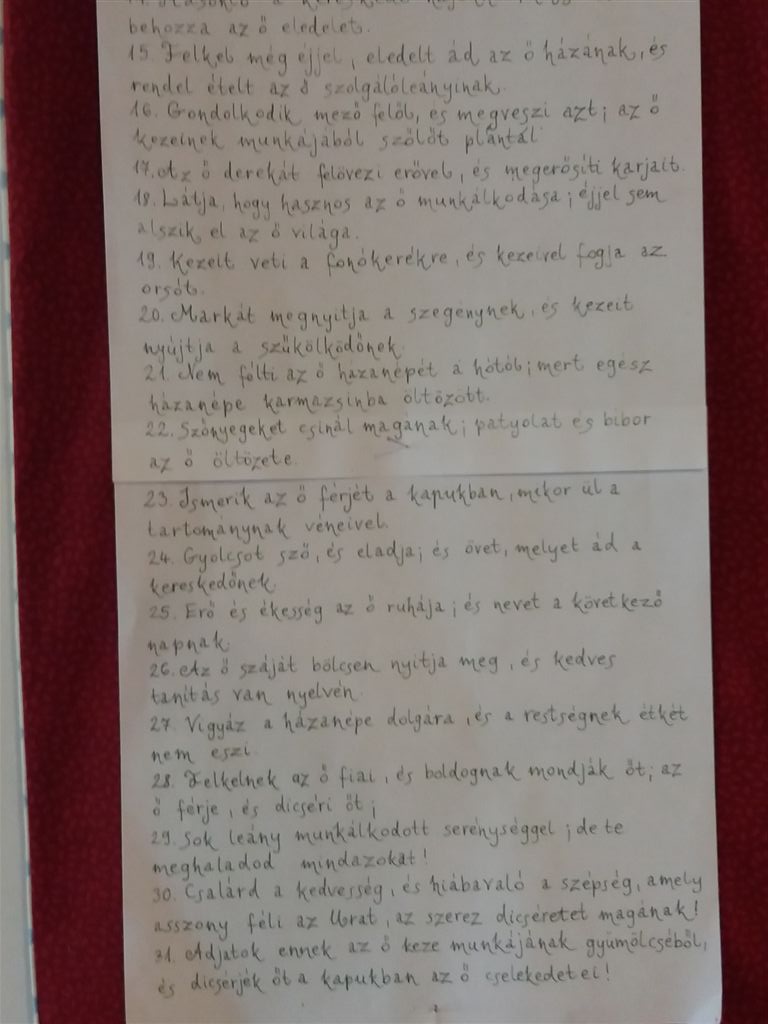 14. Hasonló a kereskedő hajóihoz
behozza az ő eledelét.
15. Felkel még éjjel, eledelt ád az ő házának, és
rendel ételt az ő szolgálóleányinak.
16. Gondolkodik mező felől, és megveszi azt; az ő
kezeinek munkájából szőlőt plántál
17. Az ő derekát felövezi erővel, és megerősíti karjait.
18. Látja, hogy hasznos az ő munkálkodása; éjjel sem
alszik el az ő világa.
19. Kezeit veti a fonókerékre, és kezeivel fogja az
orsót.
20. Markát megnyitja a szegénynek, és kezeit
nyújtja a szűkölködőnek.
21. Nem félti az ő házanépét a hótól; mert egész
házanépe karmazsinba öltözött.
22. Szőnyegeket csinál magának; patyolat és bíbor
az ő öltözete.
23. Ismerik az ő férjét a kapukban, mikor ül a
tartománynak véneivel.
24. Gyolcsot sző, és eladja; és övet, melyet ád a
kereskedőnek.
25. Erő és ékesség az ő ruhája; és nevet a következő
napnak.
26. Az ő száját bölcsen nyitja meg, és kedves
tanítás van nyelvén.
27. Vigyáz a házanépe dolgára, és a restségnek étkét
nem eszi.
28. Felkelnek az ő fiai, és boldognak mondják őt; az
ő férje, és dicséri őt;
29. Sok leány munkálkodott serénységgel; de te
meghaladod mindazokat!
30. Csalárd a kedvesség, és hiábavaló a szépség, amely
asszony féli az Urat, az szerez dicséretet magának!
31. Adjatok ennek az ő keze munkájának gyümölcséből,
és dicsérjék őt a kapukban az ő cselekedetei!